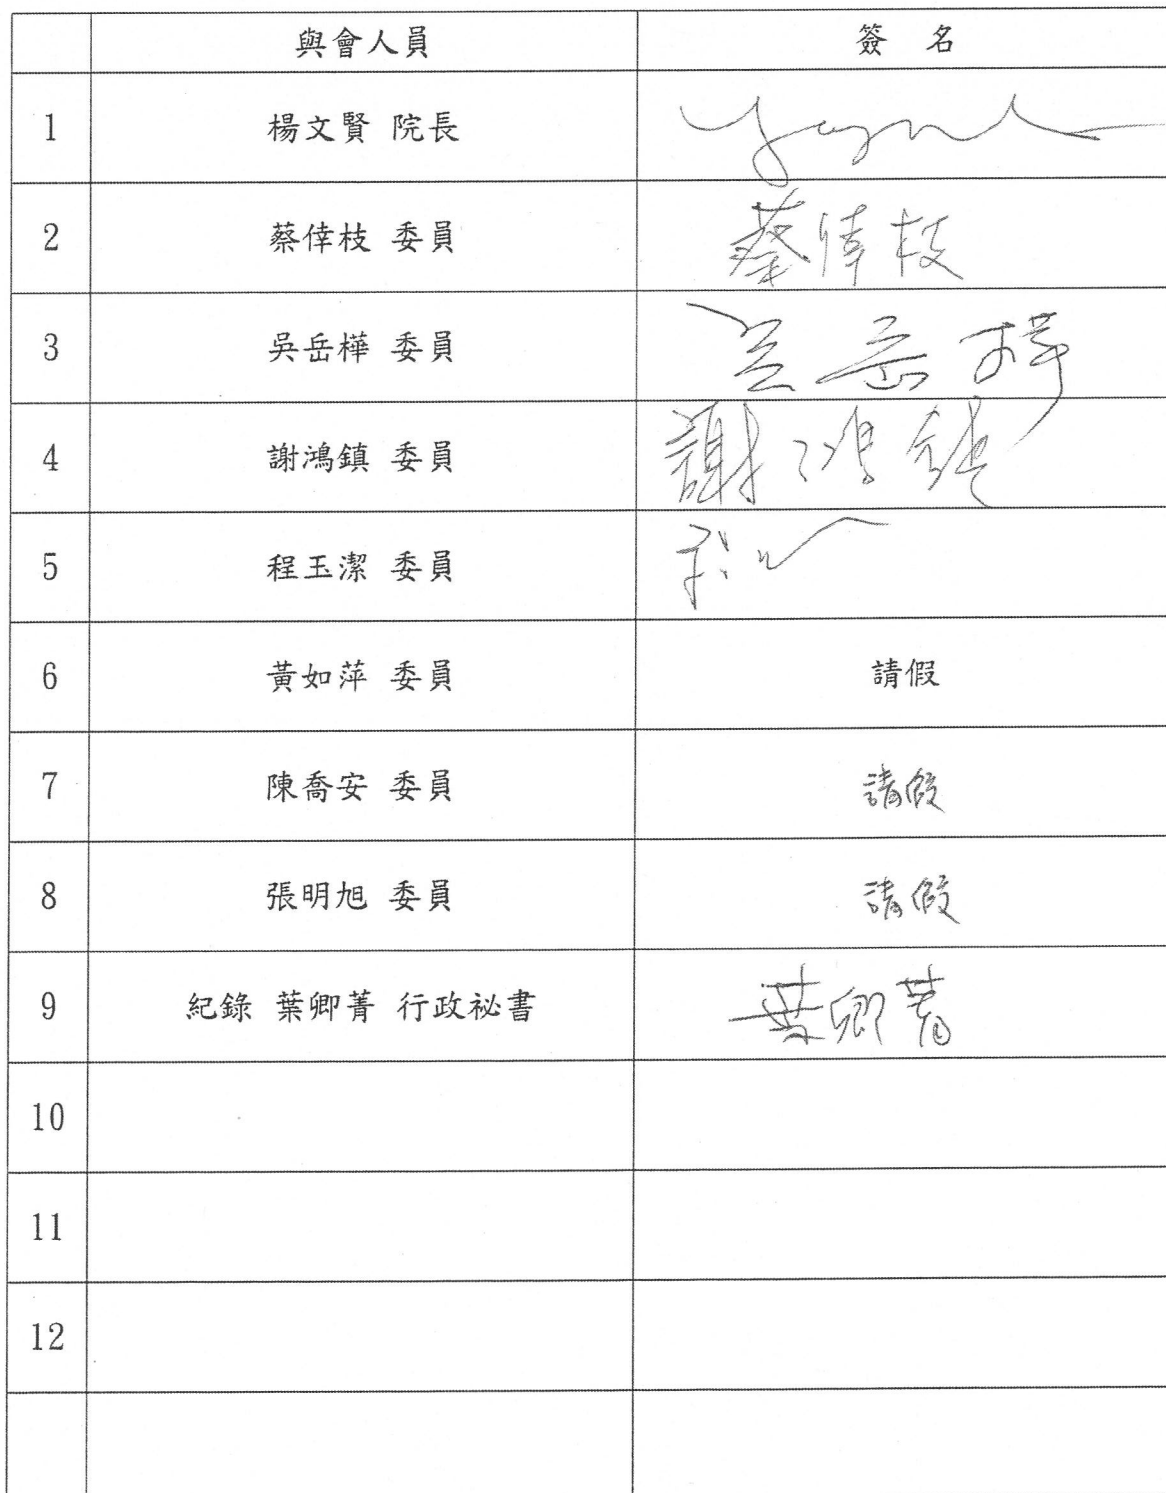 與會人員 簽 名
1 楊文賢 院長
2 蔡倖枝 委員 蔡倖枝
3 吳岳樺 委員 吳岳樺
4 謝鴻鎮 委員 謝鴻鎮
5 程玉潔 委員
6 黃如萍 委員 請假
7 陳喬安 委員 請假
8 張明旭 委員 請假
9 紀錄 葉卿菁 行政祕書 葉卿菁
10
11
12